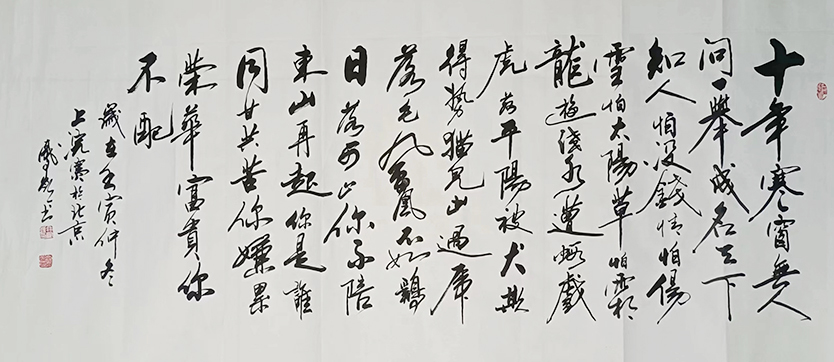 十年寒窗無人
問一舉成名天下
知人怕沒錢情怕傷
雪怕太陽草怕霜
龍遊淺水遭蝦戲
虎落平陽被犬欺
得勢猫兒山過虎
落毛鳳凰不如鷄
日落西山你不陪
東山再起你是誰
同甘共苦你嫌累
榮華富貴你
不配
歲在壬寅仲冬
上浣書於北京